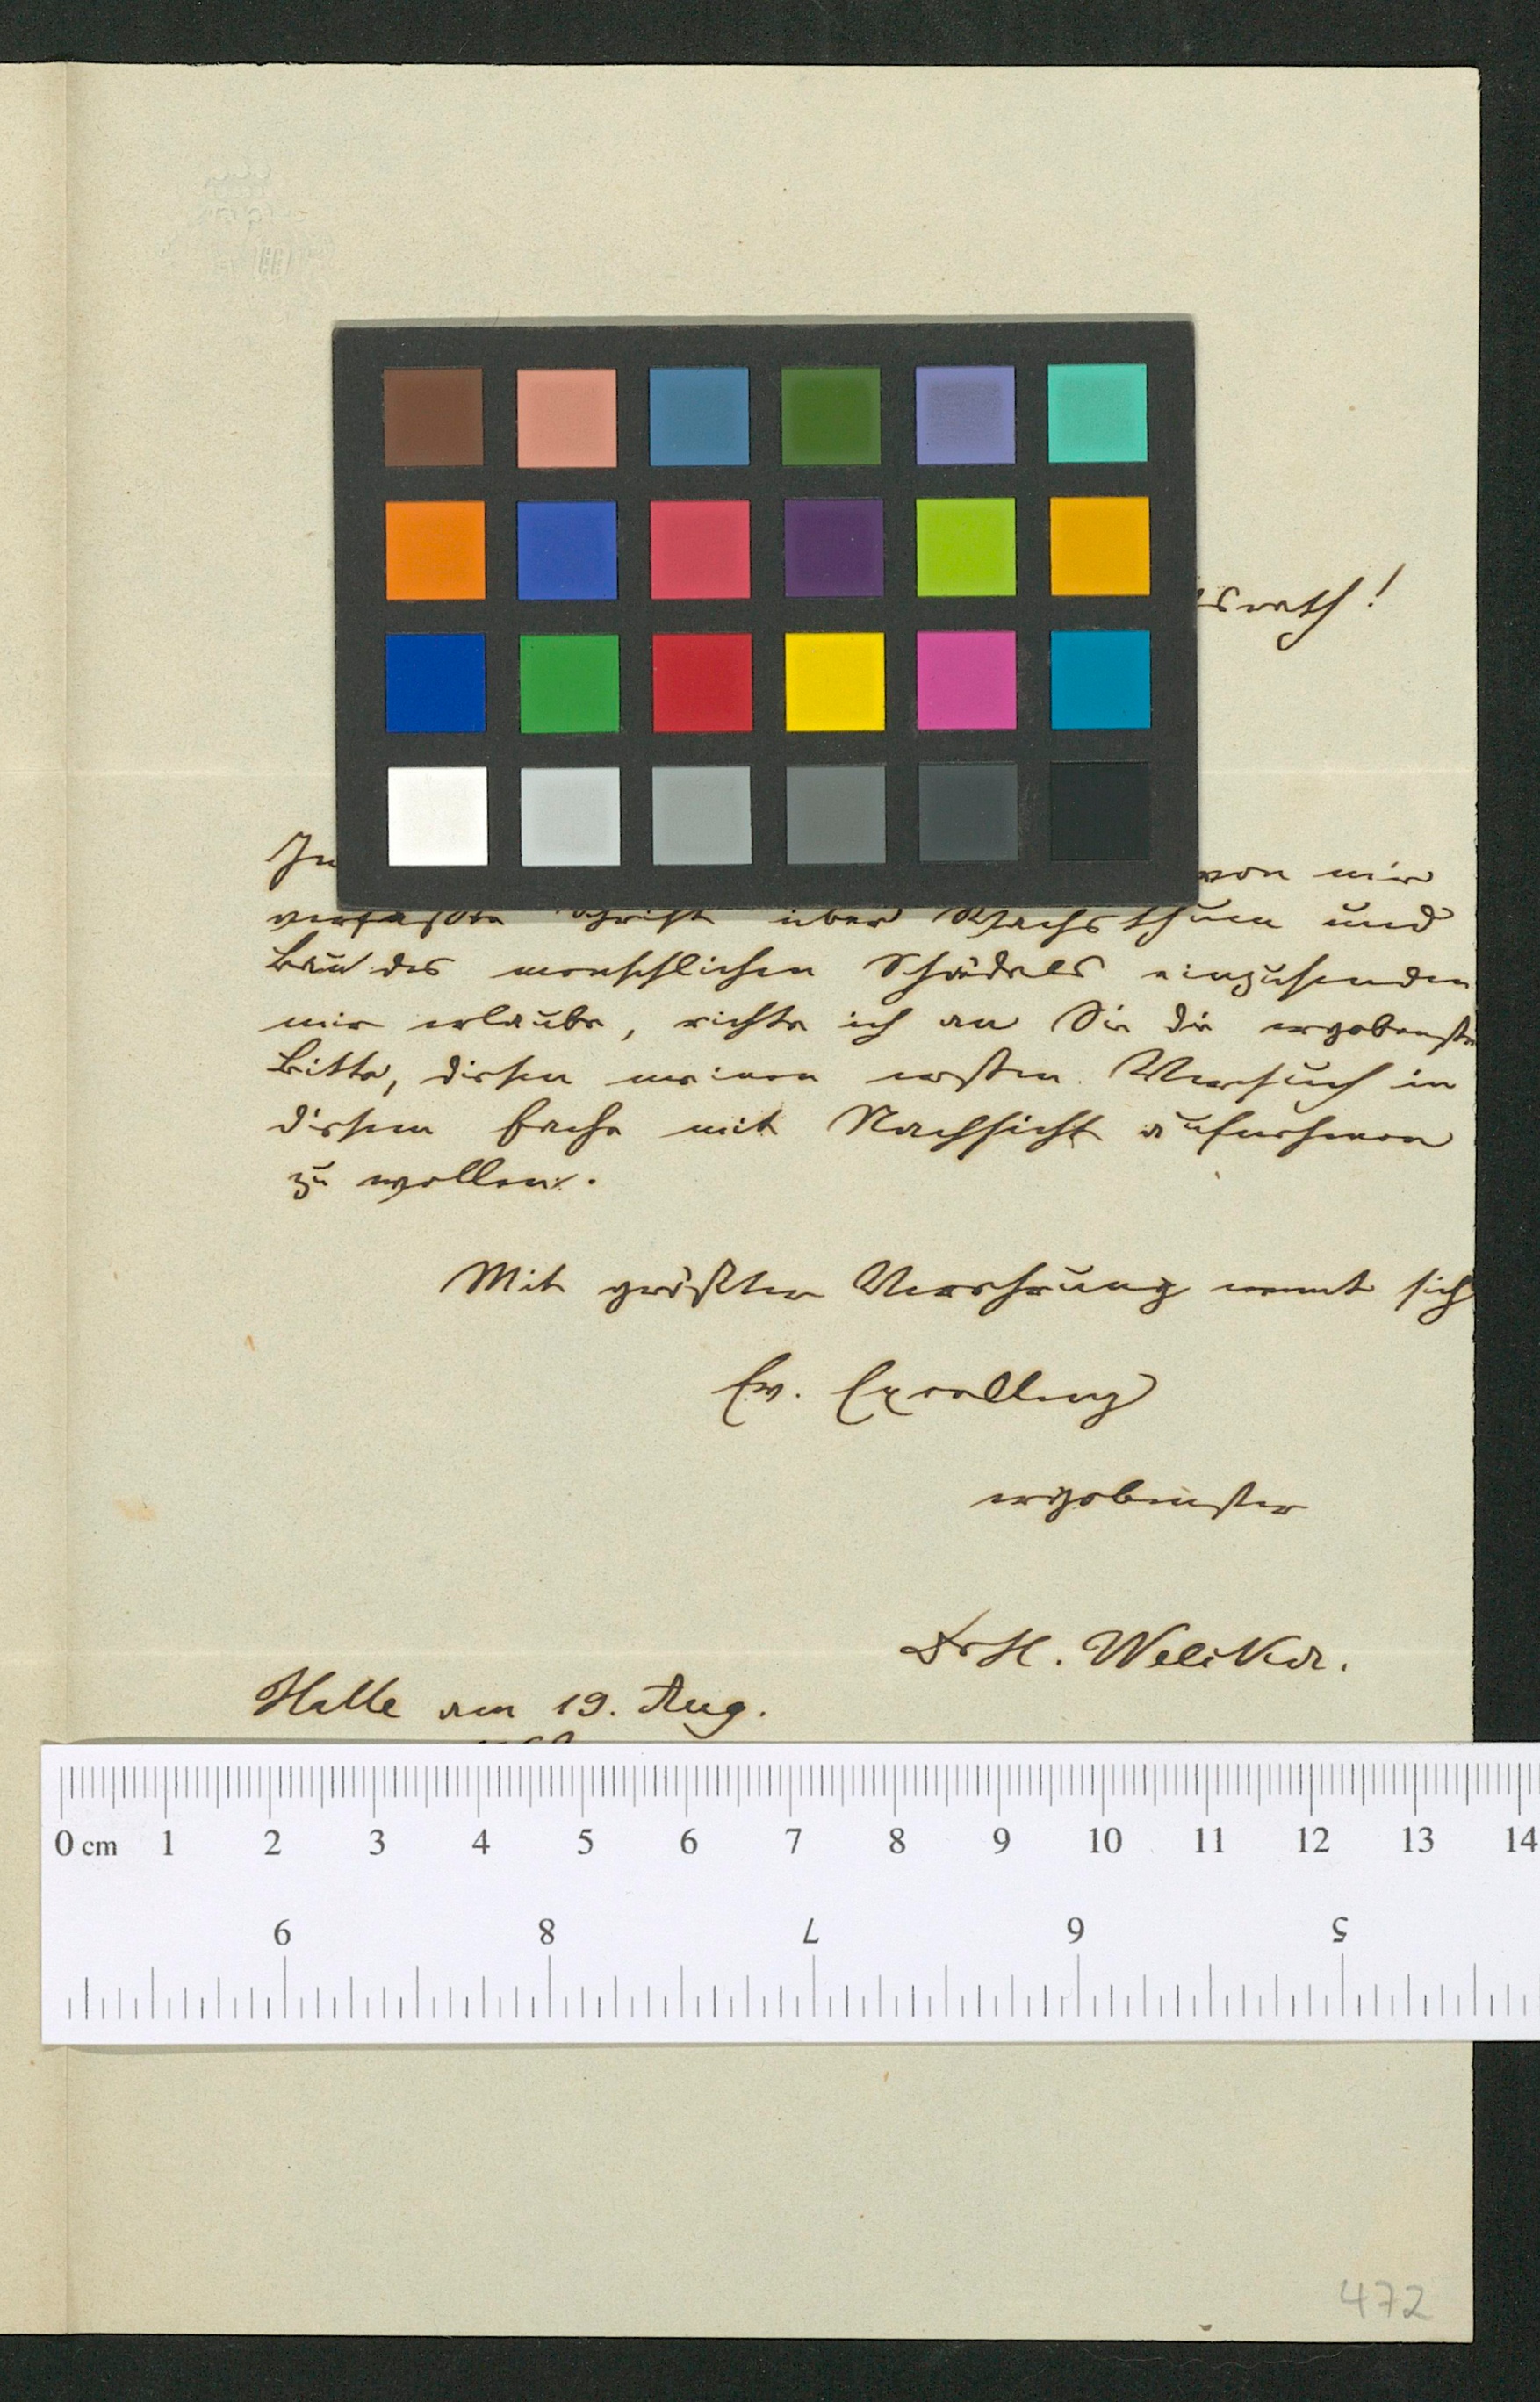 srath!
In von mir
verfaßte Schrift über Wachsthum und
Bau des menschlichen Schädels einzusenden
mir erlaube, richte ich an Sie die ergebenste
Bitte, diesen meinen ersten Versuch in
diesem Fache mit Nachsicht aufnehmen
zu wollen.
Mit größter Verehrung nennt sich
Ew. Excellenz
ergebenster
Dr H. Welcker.
Halle am 19. Aug.
0 cm 1 2 3 4 5 6 7 8 9 10 11 12 13 14
9 8 7 6 5
472